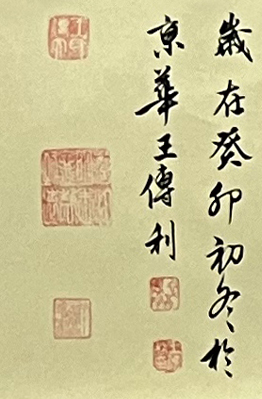 歲在癸卯初冬於
京華王傳利